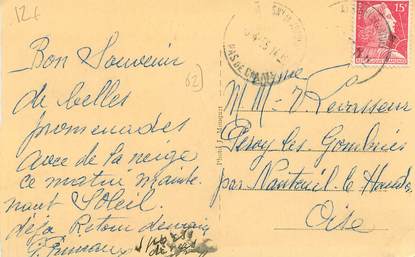 12€
Bon Souvenir
de belles
promenades
avec de la neige
ce matin mainte-
nant Soleil
déjà Retour demain
62
PAS DE CALAIS
Photo J.
15F
Mme V. Levasseur
Péroy les Gombries
par Nanteuil le Haudn
Oise